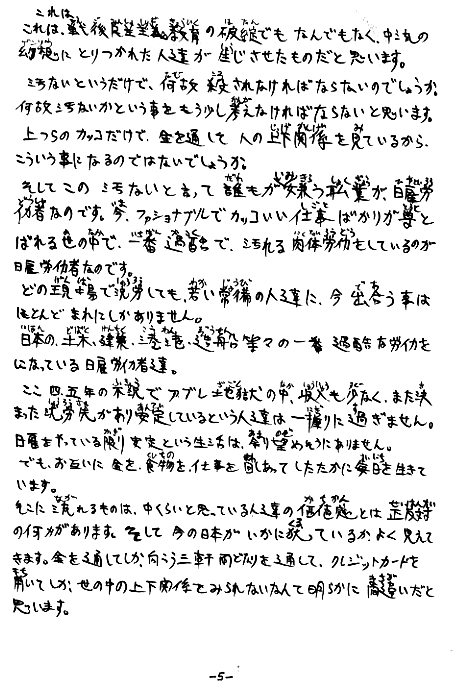 これは、
これは、戦後民主主義教育の破綻でもなんでもなく、中流の
幻想にとりつかれた人達が生じさせたものだと思います。
汚ないというだけで、何故殺されなければならないのでしょうか。
何故汚ないかという事をもう少し考えなければならないと思います。
上っつらのカッコだけで、金を通して人の上下関係を見ているから、
こういう事になるのではないでしょうか。
そしてこの汚ないと言って誰もが嫌う職業が、日雇労
働者なのです。今、ファショナブルでカッコいい仕事ばかりが尊と
ばれる世の中で、一番過酷で、汚れる肉体労働をしているのが
日雇労働者なのです。
どの現場で就労しても、若い常備の人達に、今出合う事は
ほとんどまれにしかありません。
日本の、土木、建築、港湾、造船等々の一番過酷な労働を
になっている日雇労働者達。
ここ四、五年の不況でアブレ地獄の中、収入も少なく、また決
まった就労先があり安定しているという人達は一握りに過ぎません。
日雇をやっている限り安定という生活は、余り望めそうにありません。
でも、お互いに金を、食物を、仕事を Aしたたかに毎日を生きて
います。
そこに流れるものは、中くらいと思っている人達の価値感とは正反対
の何かがあります。そして今の日本がいかに狂っているか、よく見えて
きます。金を通してしか、向こう三軒両どなりを通して、クレジットカードを
用いてしか、世の中の上下関係をみられないなんて明らかに間違いだと
思います。
-5-